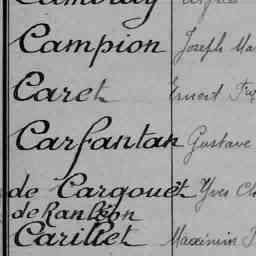 Campion Joseph Ma
Caret Ernest
Carfantan Gustave
de Cargouët Yves
de Ranléon
Carillet Maximin